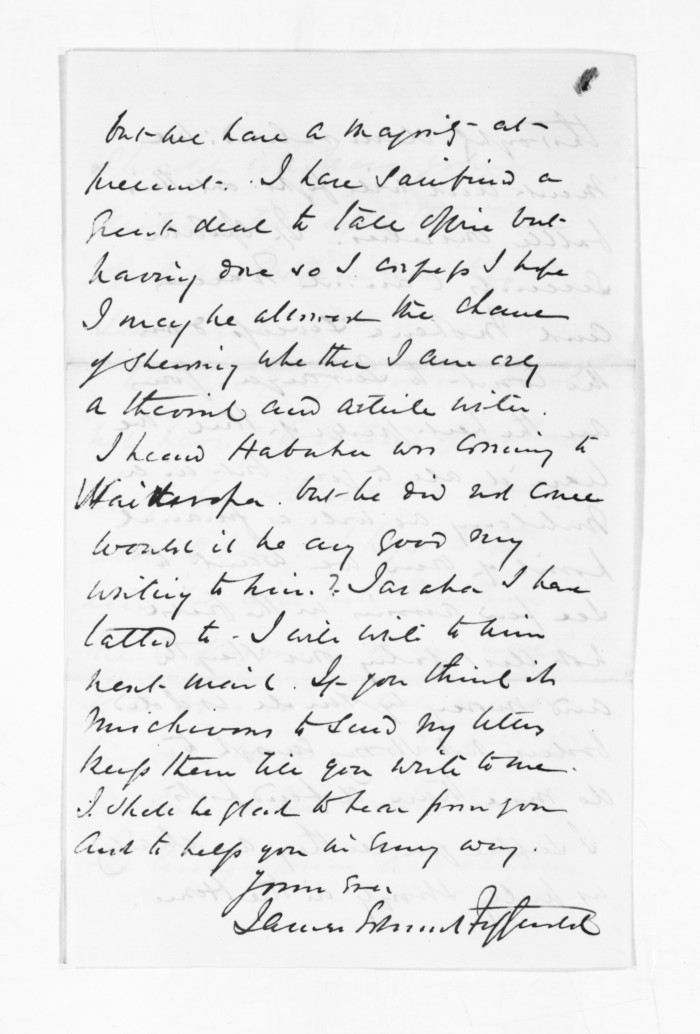 but we have a majority at
present. I have sacrificed a
great deal to take office but
having done so I confess I hope
I may be allowed the chance
of shewing whether I am only
a theorist and article writer.
I heard Habuku was coming to
Wairarapa. but he did not come
would it be any good my
writing to him? I have
talked to - I will write to him
next mail. If you think it
mischivous to send my letters
keep them till you write to me.
I shall be glad to hear from you
and to help you in every way.
Yours Ever
James Edward FitzGerald